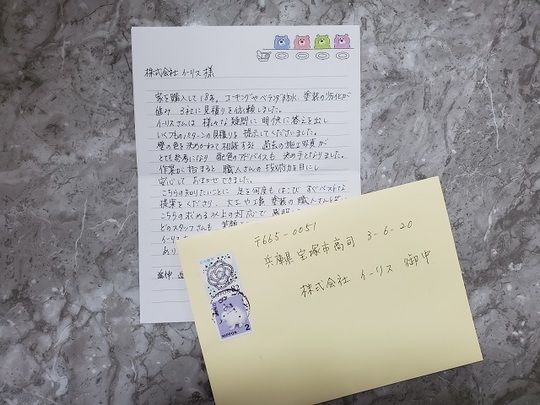 株式会社 イーリス 様
家を購入して18年。コーキングやベランダ防水、塗装の劣化が
進み 3社に見積りを依頼しました。
イーリスさんは 様々な疑問に 明快に答えを出し
いくつものパターンの見積りを 提示してくださいました。
壁の色を決めかねて相談すると 過去の施工写真が
とても参考になり 配色のアドバイスも 決め手となりました。
作業が始まると 職人さんの技術力を目にし
安心して おまかせできました。
こちらの知りたいことに 足を何度もはこび すぐベストな
提案をくださり、大工や工事、塗装の職人さんも
こちらの求める以上の対応で
どのスタッフさんも 笑顔
イーリス
あり
〒665-0051
兵庫県宝塚市高司 3-6-20
株式会社 イーリス 御中
NIPPON 82
NIPPON 2